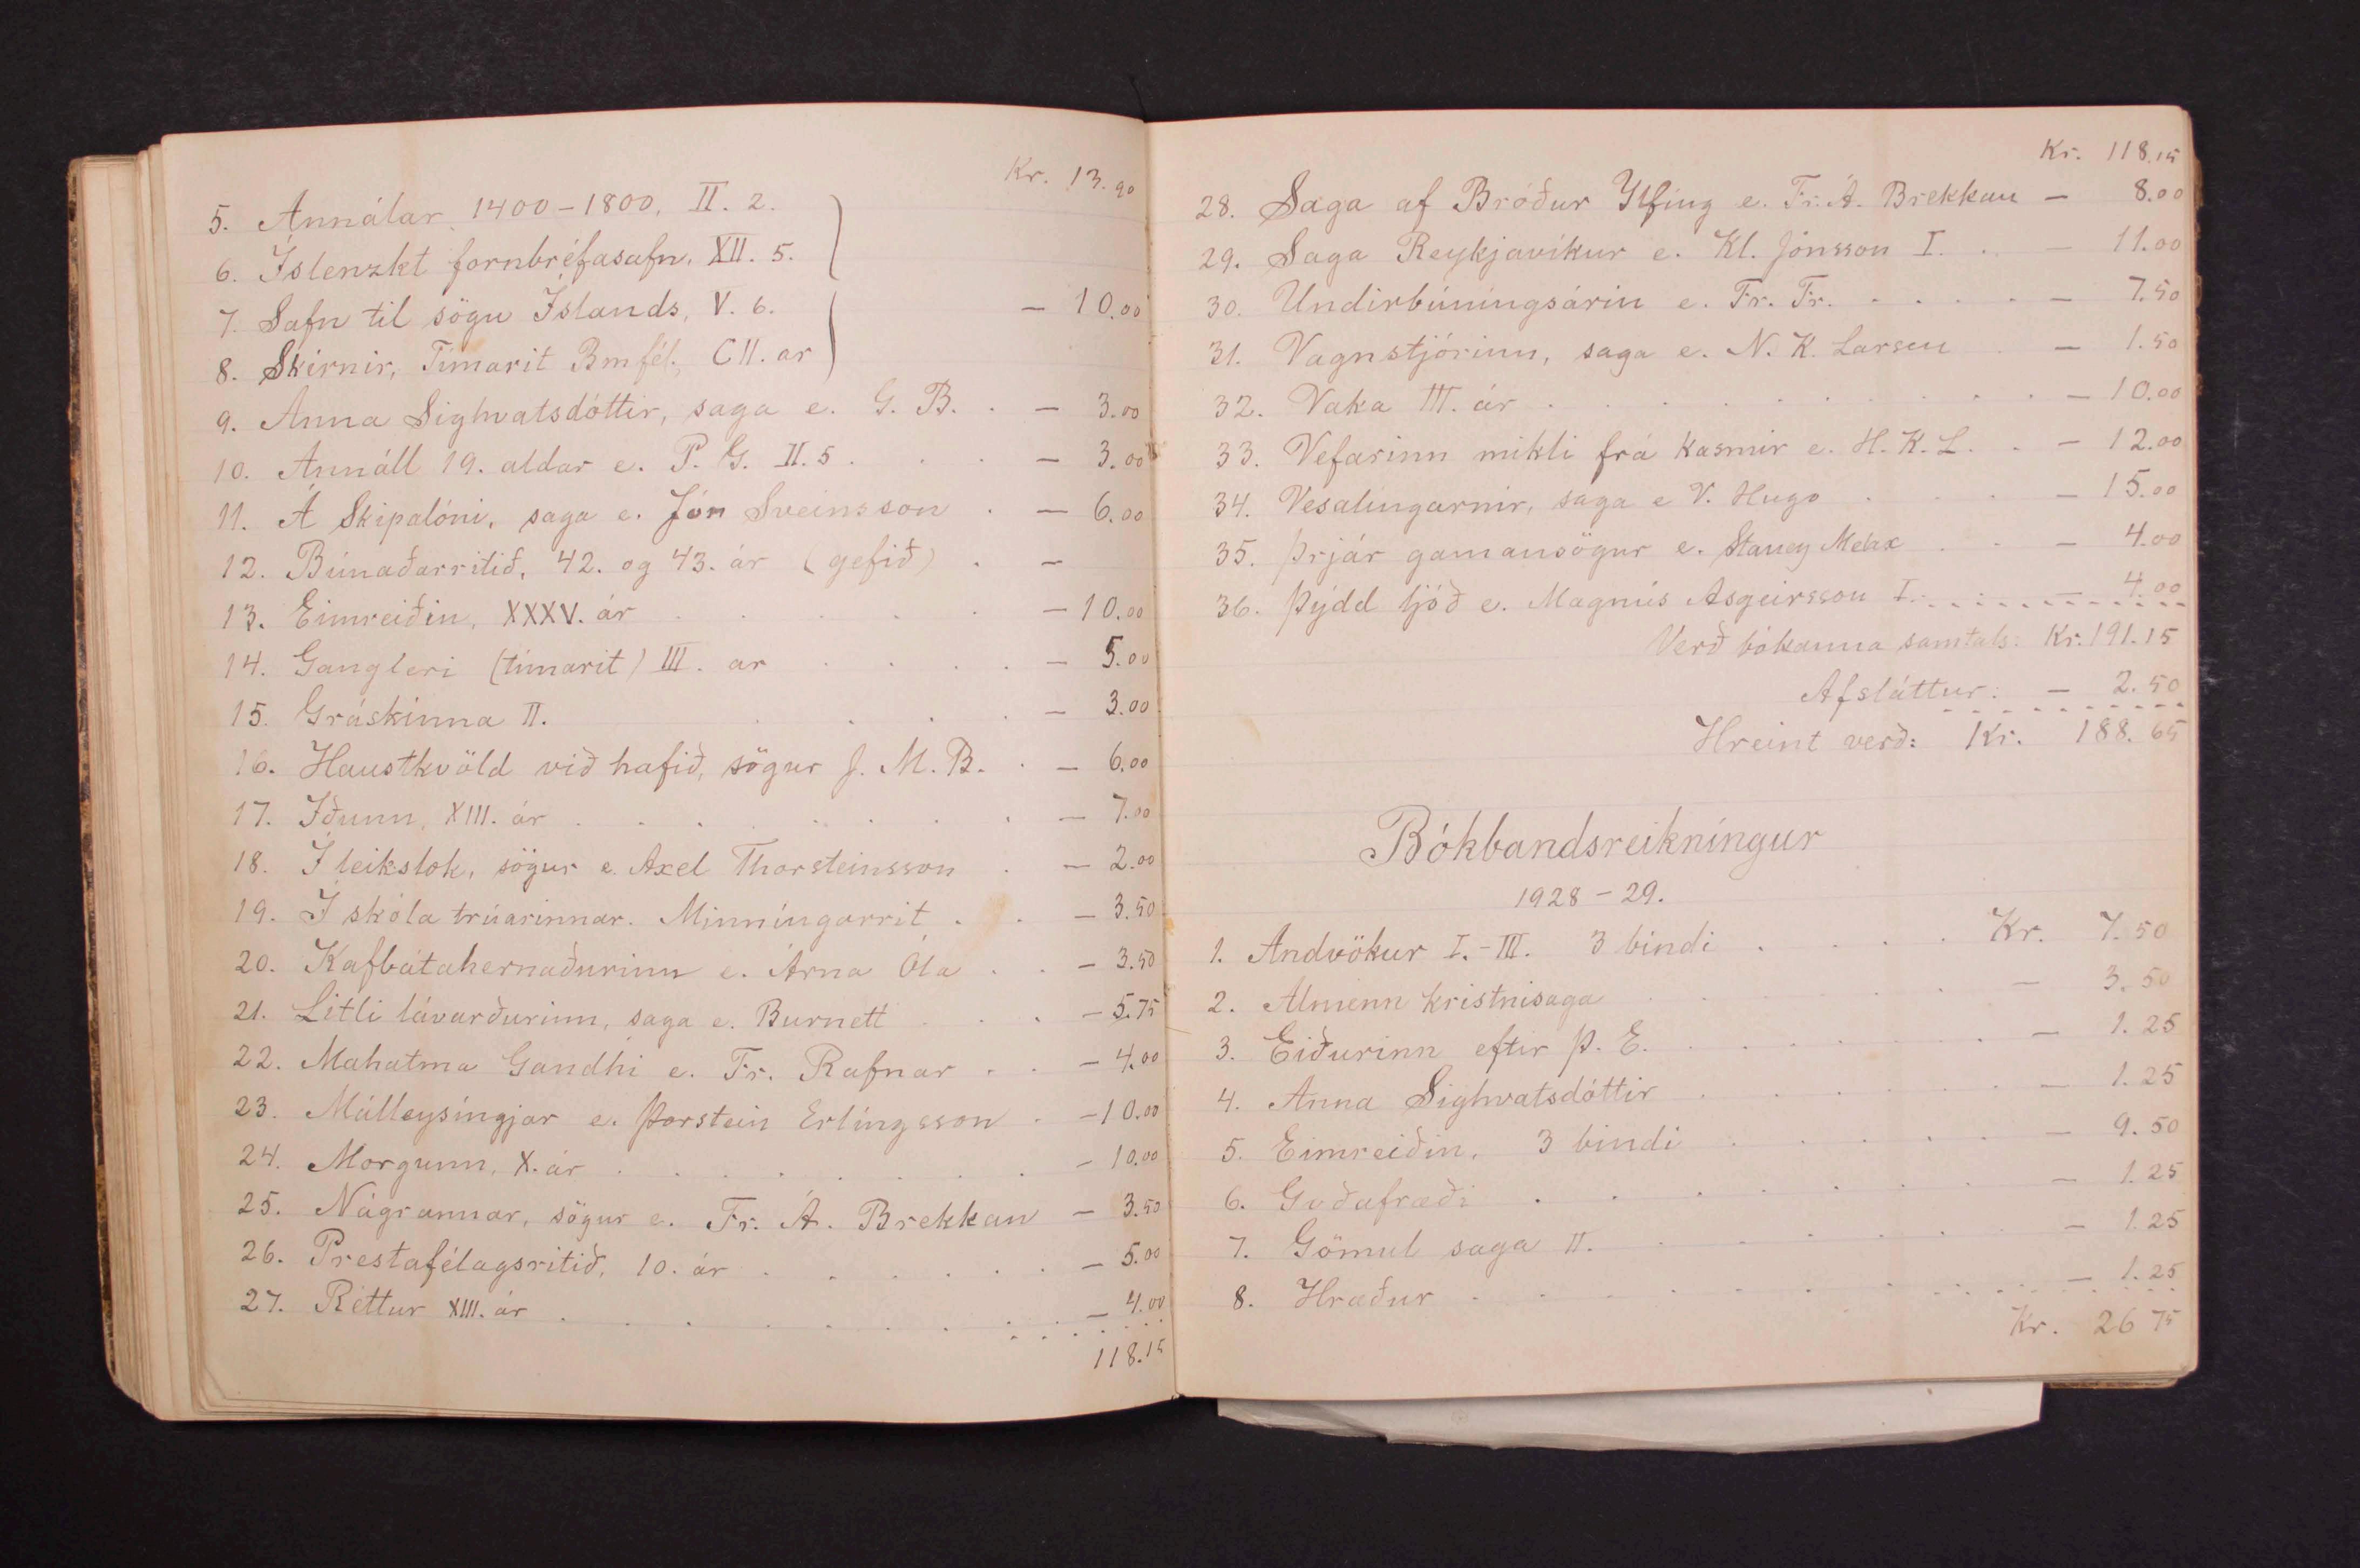 Kr. 13.90
5. Annálar 1400-1800, II. 2.
6. Íslenzkt fornbréfasafn, XII. 5.
7. Safn til sögu Íslands, V. 6. — 10.00
8. Skírnir, Tímarit Bmfél., CII. ar
9. Anna Sighvatsdóttir, saga e. G. B. . — 3.00
10. Annáll 19. aldar e. P. G. II. 5 . . . — 3.00
11. Á Skipalóni, saga e. Jón Sveinsson . — 6.00
12. Búnaðarritið, 42. og 43. ár (gefið) . —
13. Eimreiðin, XXXV. ár . . . . . — 10.00
14. Gangleri (tímarit) III. ar . . . . — 5.00
15. Gráskinna II. . . . . — 3.00
16. Haustkvöld við hafið, sögur J. M. B. . — 6.00
17. Iðunn, XIII. ár . . . . . . . . — 7.00
18. Í leikslok, sögur e. Axel Thorsteinsson . — 2.00
19. Í skóla trúarinnar. Minníngarrit . . — 3.50
20. Kafbátahernaðurinn e. Árna Óla . . — 3.50
21. Litli lávarðurinn, saga e. Burnett . . . — 5.75
22. Mahatma Gandhi e. Fr. Rafnar . . — 4.00
23. Málleysíngjar e. Þorstein Erlíngsson . — 10.00
24. Morgunn, X. ár . . . . . . . — 10.00
25. Nágrannar, sögur e. Fr. Á. Brekkan — 3.50
26. Prestafélagsritið, 10. ár . . . . . . — 5.00
27. Réttur XIII. ár . . . . . . . — 4.00
118.15
Kr. 118.15
28. Saga af Bróður Ylfing e. Fr. Á. Brekkan — 8.00
29. Saga Reykjavíkur e. Kl. Jónsson I. . — 11.00
30. Undirbúníngsárin e. Fr. Fr. . . . . — 7.50
31. Vagnstjórinn, saga e. N. K. Larsen . — 1.50
32. Vaka III. ár . . . . . . . . . — 10.00
33. Vefarinn mikli frá Kasmír e. H. K. L. . — 12.00
34. Vesalingarnir, saga e V. Hugo . . . — 15.00
35. Þrjár gamansögur e. . . — 4.00
36. Þýdd ljóð e. Magnús Asgeirsson I. . . — 4.00
Verð bókanna samtals: Kr. 191.15
Afsláttur: — 2.50
Hreint verð: Kr. 188.65
Bókbandsreikníngur
1928-29.
1. Andvökur I.-III. 3 bindi . . . . Kr. 7.50
2. Almenn kristnisaga . . . . . — 3.50
3. Eiðurinn eftir Þ. E. . . . . . . — 1.25
4. Anna Sighvatsdóttir . . . . . . — 1.25
5. Eimreiðin, 3 bindi . . . . . — 9.50
6. Goðafræði . . . . . . . — 1.25
7. Gömul saga II. . . . . . . — 1.25
8. Hræður . . . . . . . . — 1.25
Kr. 26 75